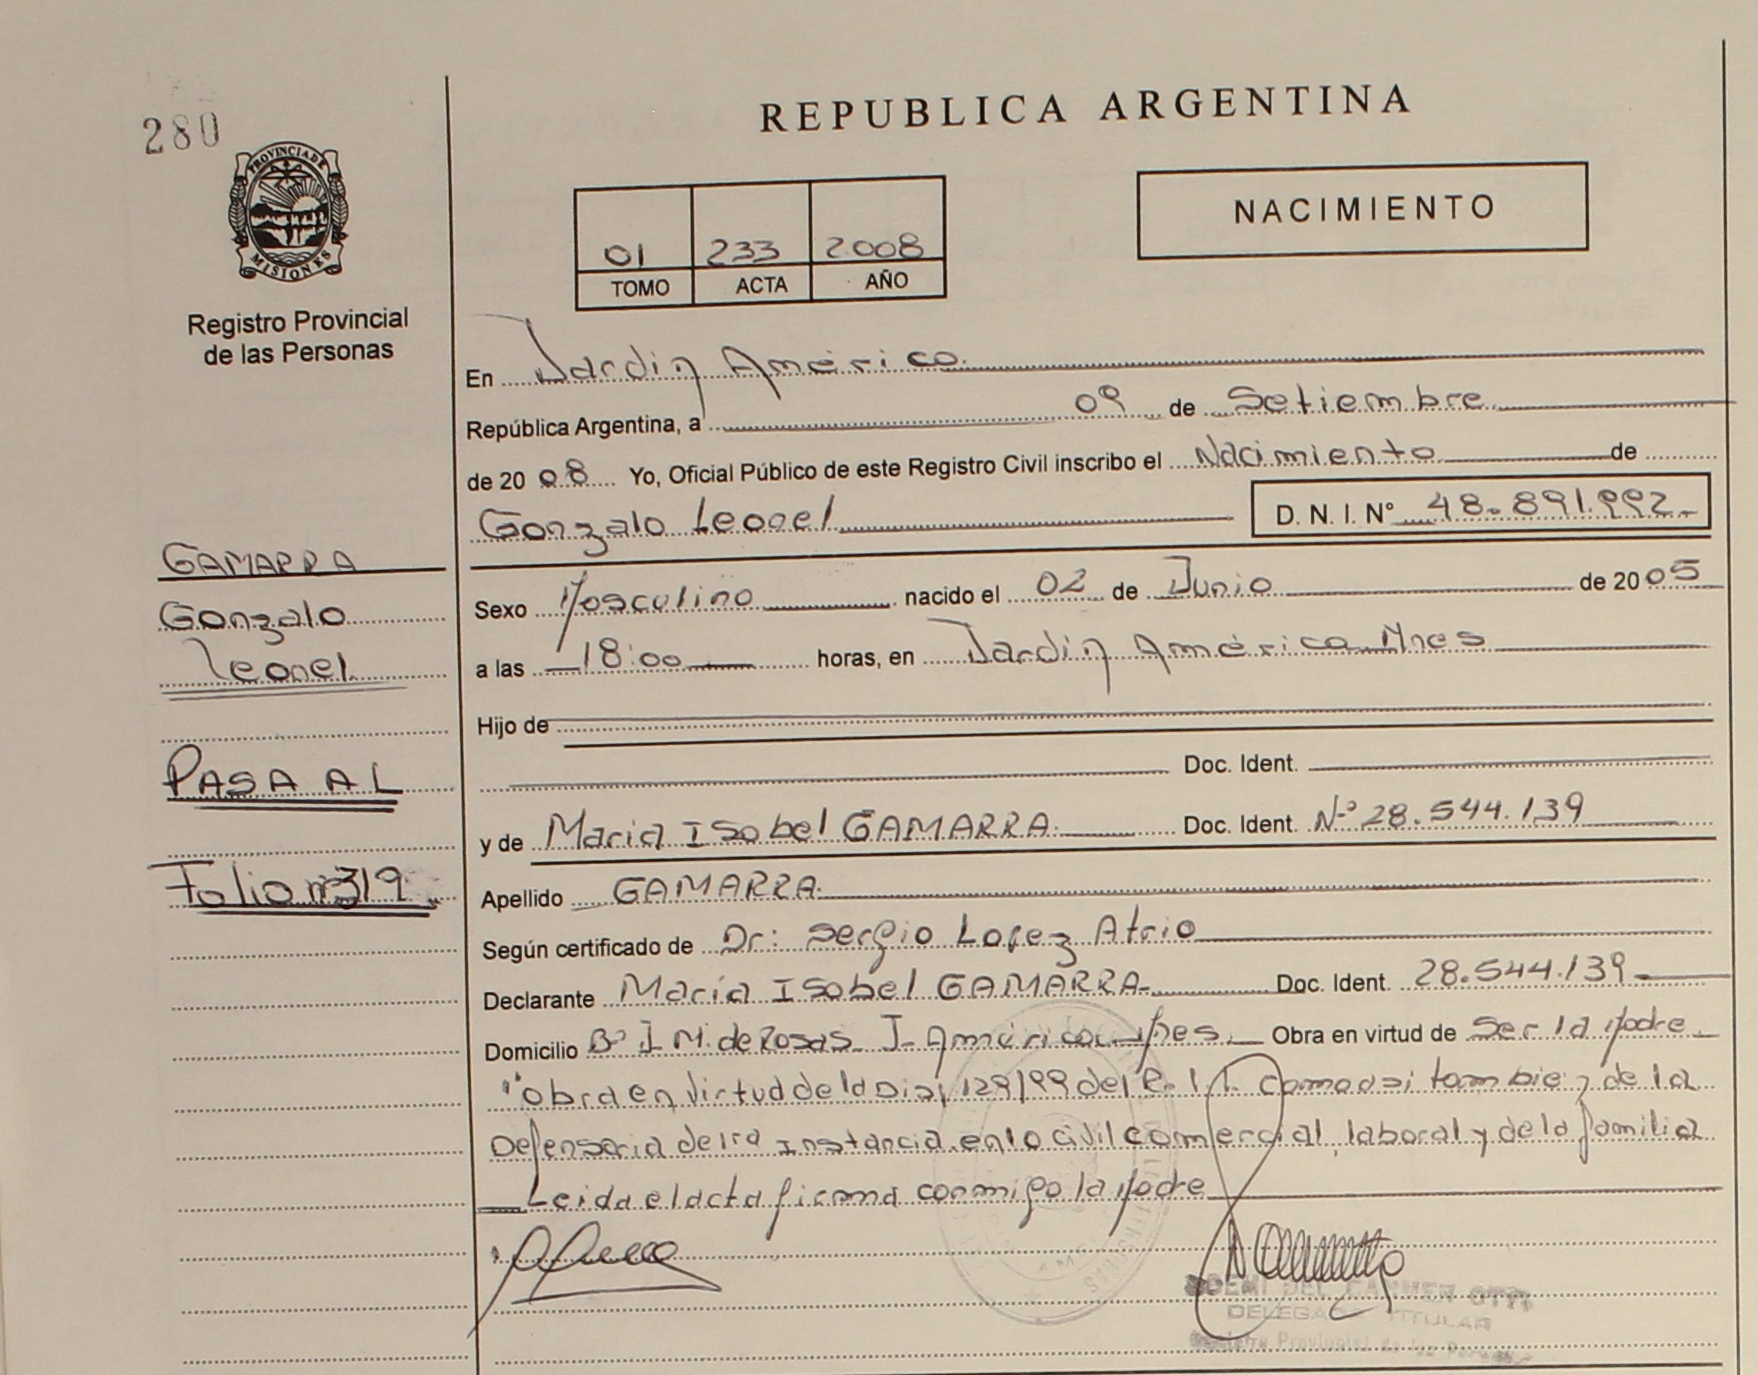 280
PROVINCIA DE
MISIONES
Registro Provincial
de las Personas
REPUBLICA ARGENTINA
NACIMIENTO
01 233 2008
TOMO ACTA AÑO
En Jardin América
República Argentina, a 09 de Setiembre
de 20 08 Yo, Oficial Público de este Registro Civil inscribo el Nacimiento de
Gonzalo Leonel D. N. I. N° 48.891.992.-
GAMARRA
Gonzalo
Leonel
Sexo Masculino nacido el 02 de Junio de 20 05
a las 18:00 horas, en Jardin América Mnes
Hijo de
Doc. Ident.
PASA AL
y de Maria Isabel GAMARRA.- Doc. Ident. Nº 28.544.139
Folio nº 319
Apellido GAMARRA.
Según certificado de Dr: Sergio Lopez Atrio
Declarante María Isabel GAMARRA.- Doc. Ident. 28.544.139-
Domicilio Bº J M. de Rosas J. América Mnes. Obra en virtud de Ser la Madre
"Obra en Virtud de la Disp. 129/99 del R.P. como asi tambien de la
Defensoria de 1ra Instancia en lo civil comercial, laboral y de la familia
Leida el acta firma conmigo la Madre
DEL
DELEGADA TITULAR
Registro Provincial de las Personas